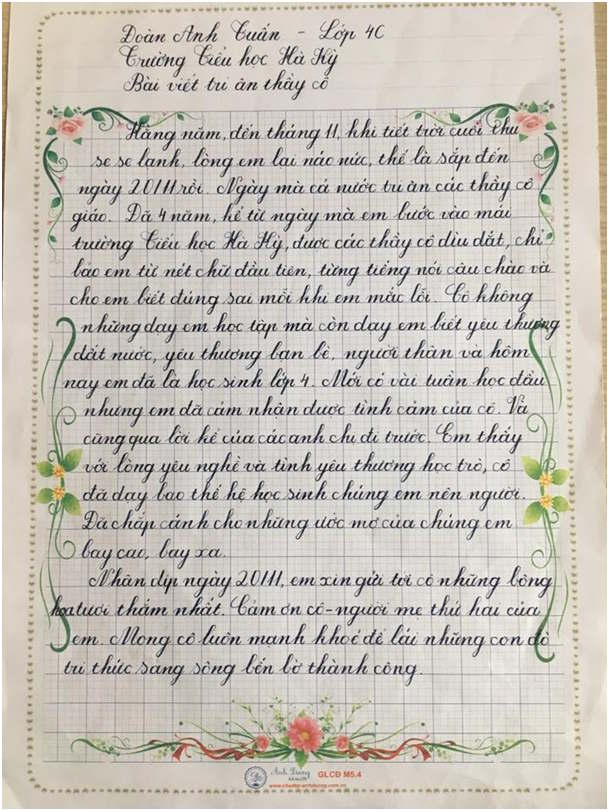 Đoàn Anh Tuấn - Lớp 4C
Trường Tiểu học Hà Kỳ
Bài viết tri ân thầy cô
Hằng năm, đến tháng 11, khi tiết trời cuối thu
se se lạnh, lòng em lại náo nức, thế là sắp đến
ngày 20/11 rồi. Ngày mà cả nước tri ân các thầy cô
giáo. Đã 4 năm, kể từ ngày mà em bước vào mái
trường Tiểu học Hà Kỳ, được các thầy cô dìu dắt, chỉ
bảo em từ nét chữ đầu tiên, từng tiếng nói câu chào và
cho em biết đúng sai mỗi khi em mắc lỗi. Cô không
những dạy em học tập mà còn dạy em biết yêu thương
đất nước, yêu thương bạn bè, người thân và hôm
nay em đã là học sinh lớp 4. Mới có vài tuần học đầu
nhưng em đã cảm nhận được tình cảm của cô. Và
cũng qua lời kể của các anh chị đi trước. Em thấy
với lòng yêu nghề và tình yêu thương học trò, cô
đã dạy bao thế hệ học sinh chúng em nên người.
Đã chắp cánh cho những ước mơ của chúng em
bay cao, bay xa.
Nhân dịp ngày 20/11, em xin gửi tới cô những bông
hoa tươi thắm nhất. Cảm ơn cô - người mẹ thứ hai của
em. Mong cô luôn mạnh khoẻ để lái những con đò
tri thức sang sông bến bờ thành công.
Ánh Dương
GLCĐ M5.4
www.chudep-anhduong.com.vn